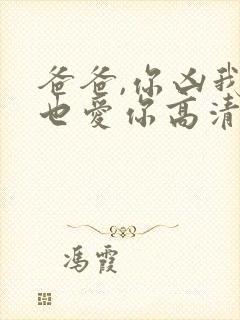 爸爸,你凶我
也爱你高清
冯霞